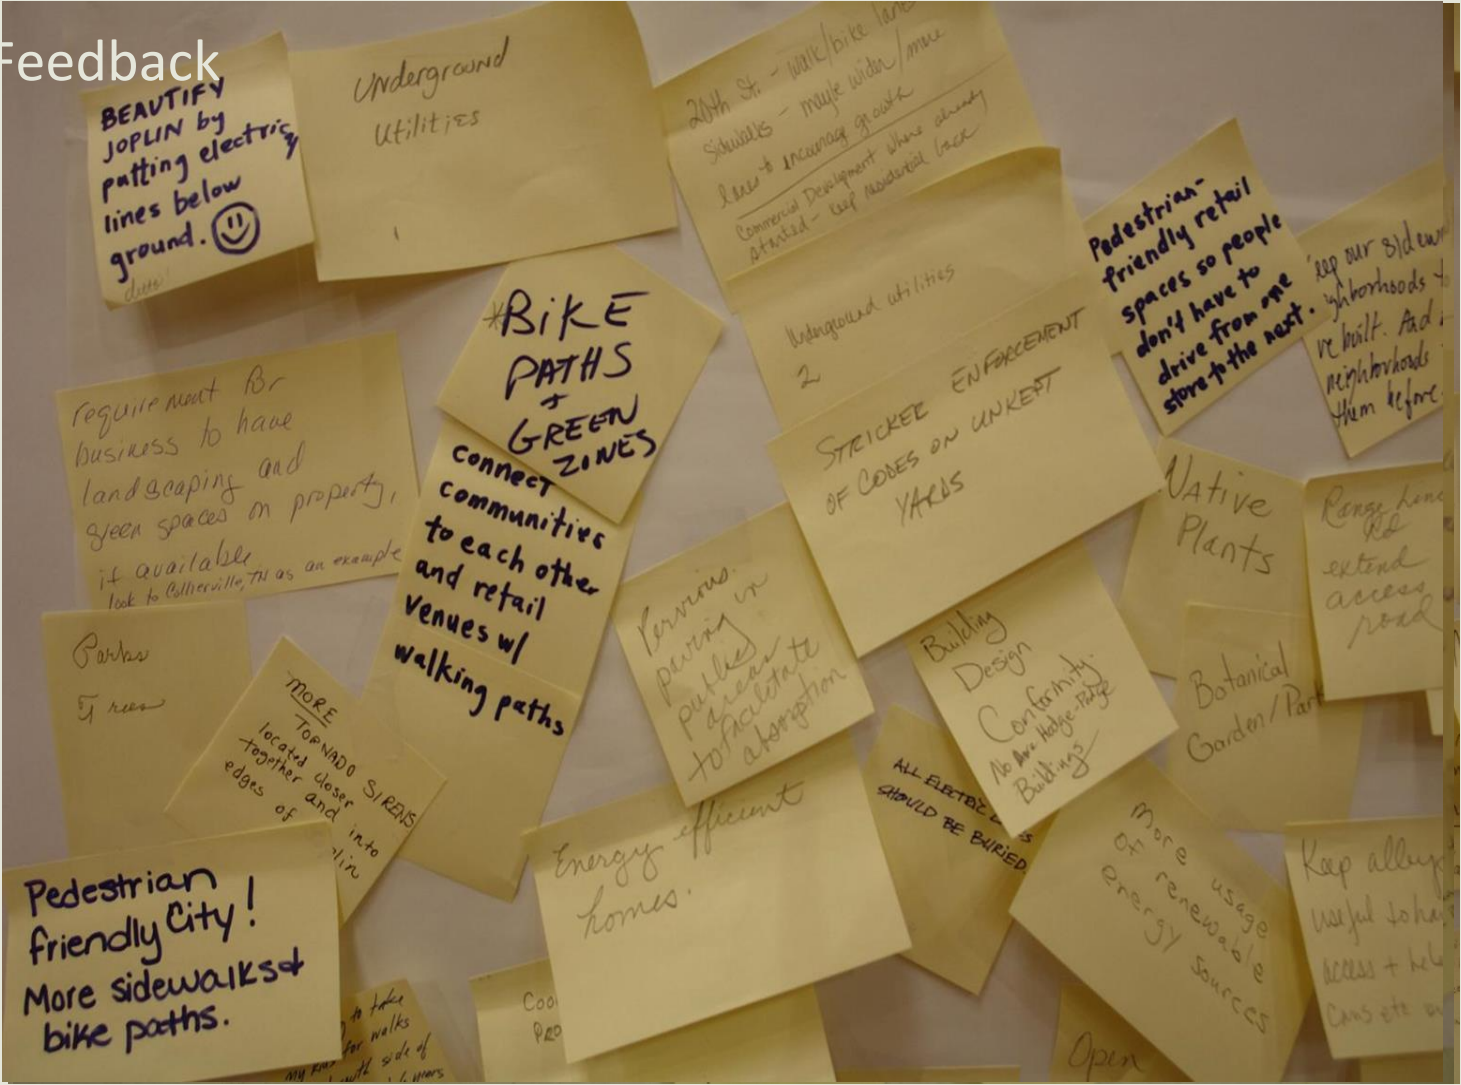 Feedback
BEAUTIFY
JOPLIN by
putting electric
lines below
ground.
ditto!
Underground
Utilities
1
20th St. - walk/bike lane
sidewalks - maybe wider/more
lanes to encourage growth
Commercial Development where already
started - keep residential back
Underground utilities
2
STRICKER ENFORCEMENT
OF CODES ON UNKEPT
YARDS
Pedestrian-
friendly retail
spaces so people
don't have to
drive from one
store to the next.
our sidew
ghborhoods to
re built. And
neighborhoods
them before.
requirement for
business to have
landscaping and
green spaces on property,
if available
look to Collierville, TN as an example
*BiKE
PATHS
+
GREEN
ZINES
connect
communities
to each other
and retail
venues w/
walking paths
Parks
Trees
MORE
TORNADO SIRENS
located closer
together and into
edges of
plin
Pervious
paving in
public
areas
to facilitate
absorption
Building
Design
Conformity.
No more Hodge-Podge
Buildings
Native
Plants
Range Line
Rd
extend
access
road
Botanical
Garden/Park
ALL ELECTRIC LINES
SHOULD BE BURIED.
Energy efficient
homes.
More usage
of renewable
energy sources
Keep alleys
useful to ha
access + hel
Pedestrian
friendly City!
More sidewalks &
bike paths.
to take
my kids for walks
side of
Coo
PRO
Open